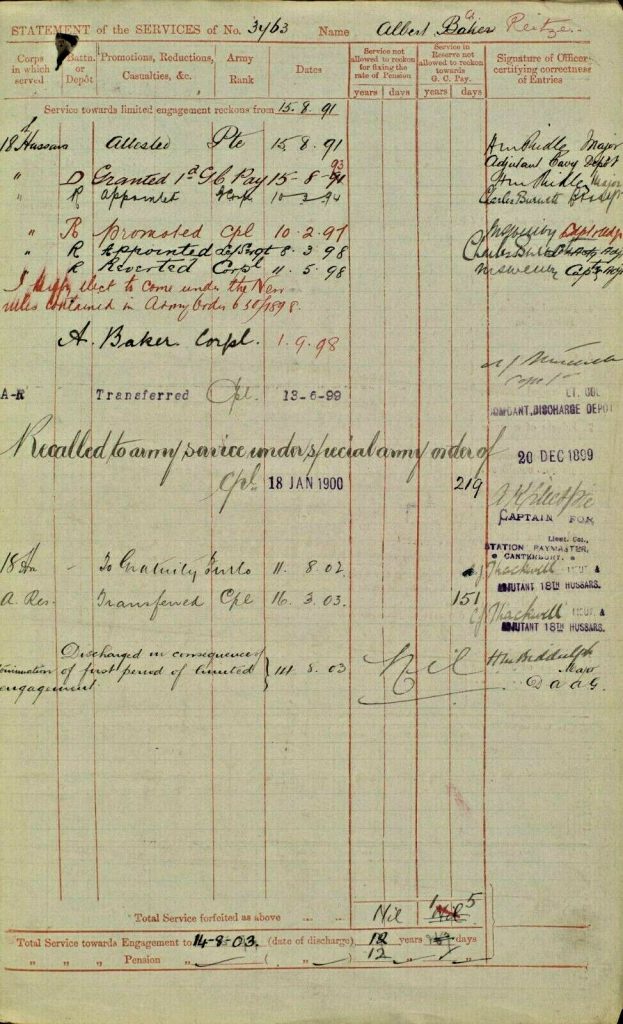 STATEMENT of the SERVICES of No. 3463 Name Albert Baker Reitzer
Corps in which served
Battn. or Depôt
Promotions, Reductions, Casualties, &c.
Army Rank
Dates
Service not allowed to reckon for fixing the rate of Pension
years days
Service in Reserve not allowed to reckon towards G. C. Pay.
years days
Signature of Officer certifying correctness of Entries
Service towards limited engagement reckons from 15.8.91
18 Hussars Attested Pte 15.8.91 Major
Adjutant Cavy Depôt
" D Granted 1d G C Pay 15-8-93 Major
" R Appointed 10-2-94 Charles Burnett
" R Promoted Cpl 10.2.97
" R Appointed L/Sergt 8.3.98 Charles Burnett
" R Reverted Corpl 11.5.98 Capt
I elect to come under the New
rules contained in Army Order 65 of 1898.
A. Baker Corpl. 1.9.98
A-R Transferred Cpl 13-6-99 LT. COL
DISCHARGE DEPOT
Recalled to army service under special army order of 20 DEC 1899
Cpl 18 JAN 1900 219
CAPTAIN FOR
Lieut. Col.,
STATION PAYMASTER,
CANTERBURY.
18 Hu - To Gratuity Furlo 11.8.02. Thackwell LIEUT &
ADJUTANT 18TH HUSSARS.
A. Res. - Transferred Cpl 16.3.03. 151 Thackwell LIEUT &
ADJUTANT 18TH HUSSARS.
Discharged in consequence of
termination of first period of limited
engagement } 14.8.03 Nil HM Biddulph
Major
D a a G.
Total Service forfeited as above ... ... Nil Nil 1 5
Total Service towards Engagement to 14-8-03. (date of discharge) 12 years days
" " Pension " ( " ) 12 " "